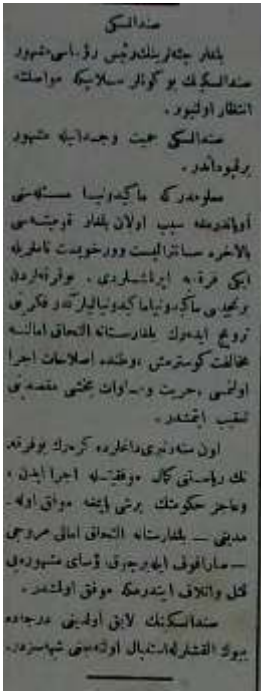 صندالسكی
بلغار چته‌لرینك رئیس رؤساسی مشهور
صندالسكینك بو كونلر سلانیكه مواصلتنه
انتظار اولنیور.
صندالسكی حمیت وجدانیله مشهور
برذاتدر.
معلومدركه ماكیدونیا مسئله‌سنی
اویاندرمغه سبب اولان بلغار قومیته‌سی
بالاخره سانترالیست وورخویست ناملریله
ایكی فرقه‌یه ایرلشلردی. بوفرقه‌لردن
برنجیسی ماكیدونیا ماكیدونیالیلركدر فكرینی
ترویج ایده‌رك بلغارستانه التحاق امالنه
مخالفت كوسترمش، وطنده اصلاحات اجرا
اولنمسی، حریت ومساوات بخشی مقصدینی
تعقیب ایتمشدر.
اون سنه‌دنبری داخلرده كزه‌رك بوفرقه
نك ریاستنی كمال موفقیتله اجرا ایدن،
وعاجز حكومتك برشی یاپمغه موفق اوله‌
مدیغی — بلغارستانه التحاق امالی مروجی
— صارافوف ایله برچوق رؤسای مشهوره‌یی
قتل واتلاف ایتدرمكه موفق اولمشدر.
صندالسكینك لایق اولدیغی درجه‌ده
بیوك القشلرله استقبال اولنه‌جغی شبهه‌سزدر.